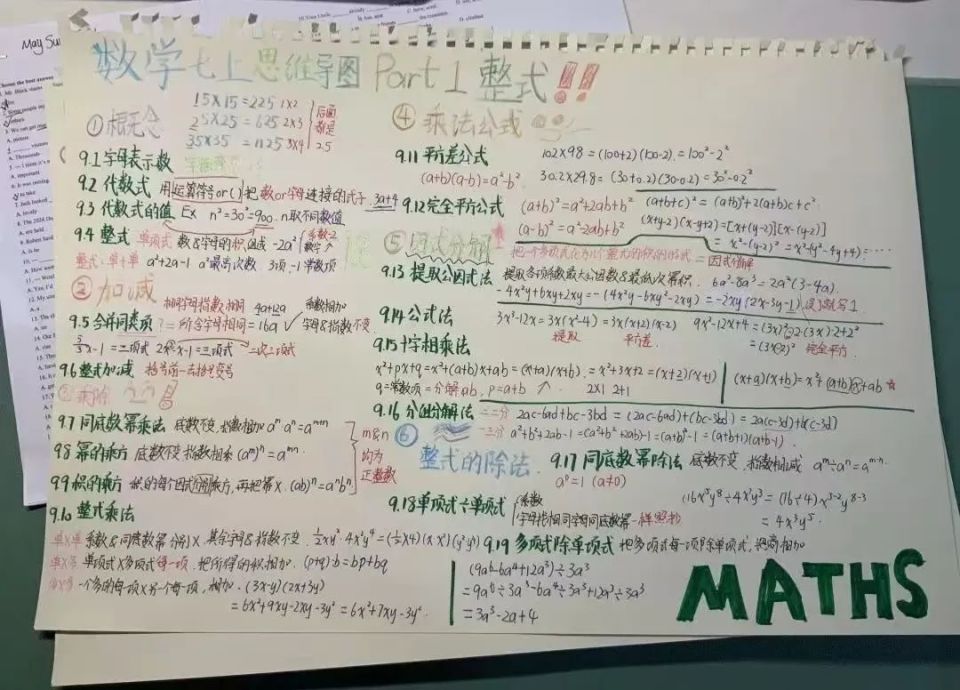 数学七上思维导图 Part 1 整式!!
①概念
15×15=225 1×2
25×25=625 2×3
35×35=1125 3×4
后面都是25
9.1 字母表示数
9.2 代数式 用运算符号or()把数or字母连接的式子 3a+4
9.3 代数式的值 Ex n²=30²=900. n取不同数值
9.4 整式 单项式 数&字母的积组成 -2a² 系数-2
整式:单+单 a²+2a-1 a²最高次数 3项 -1常数项
②加减
相同字母指数相同 4a+12a 系数相加
9.5 合并同类项 ?=所含字母相同 =16a ✓ 字母&指数不变
x-1=二项式 =三项式 二次三项式
9.6 整式加减 括号前-去括号变号
③乘除
9.7 同底数幂乘法 底数不变,指数相加 aᵐ·aⁿ=aᵐ⁺ⁿ
9.8 幂的乘方 底数不变 指数相乘 (aᵐ)ⁿ=aᵐⁿ
9.9 积的乘方 积的每个因式分别乘方,再把幂×. (ab)ⁿ=aⁿbⁿ
m&n均为正整数
9.10 整式乘法
单×单 系数&同底数幂分别×. 其余字母&指数不变. ½xy²·4x²y⁴=(½×4)(x·x²)(y²y⁴)
单×多 单项式×多项式每一项. 把所得的积相加. (p+q)·b=bp+bq
多×多 一个多的每一项×另一个每一项,相加. (3x-y)(2x+3y)
=6x²+9xy-2xy-3y²=6x²+7xy-3y².
④乘法公式
9.11 平方差公式 102×98=(100+2)(100-2).=100²-2²
(a+b)(a-b)=a²-b². 30.2×29.8=(30+0.2)(30-0.2)=30²-0.2²
9.12 完全平方公式 (a+b)²=a²+2ab+b² (a+b+c)²=(a+b)²+2(a+b)c+c².
(a-b)²=a²-2ab+b² (x+y-2)(x-y+2)=[x+(y-2)][x-(y-2)]
=x²-(y-2)²=x²-(y²-4y+4)=……
⑤因式分解 把一个多项式化为几个整式的积的形式=因式分解
9.13 提取公因式法 提取各项系数最大公因数&最低次幂积. 6a²-8a³=2a²(3-4a).
-4x²y+6xy+2xy=-(4x²y-6xy²-2xy)=-2xy(2x-3y-1).
9.14 公式法 3x³-12x=3x(x²-4)=3x(x+2)(x-2) 9x²-12x+4=(3x)²-2·(3x)·2+2²
提取 平方差. =(3x-2)² 完全平方.
9.15 十字相乘法
x²+px+q=x²+(a+b)x+ab=(x+a)(x+b).=x²+3x+2=(x+2)(x+1) (x+a)(x+b)=x²+(a+b)x+ab
q=常数项=分解ab, p=a+b 2×1 2+1
9.16 分组分解法 二二分 2ac-6ad+bc-3bd=(2ac-6ad)+(bc-3bd)=2a(c-3d)+b(c-3d)
三一分 a²+b²+2ab-1=(a²+b²+2ab)-1=(a+b)²-1=(a+b+1)(a+b-1).
⑥整式的除法.
9.17 同底数幂除法 底数不变,指数相减 aᵐ÷aⁿ=aᵐ⁻ⁿ
a⁰=1 (a≠0)
9.18 单项式÷单项式 系数 (16x³y⁸÷4x²y³=(16÷4)x³⁻²y⁸⁻³
字母找相同字母同底数幂一样照抄 =4x³y⁵.
9.19 多项式除单项式 把多项式每一项除单项式,把商相加
(9a⁶-6a⁴+12a³)÷3a³
=9a⁶÷3a³-6a⁴÷3a³+12a³÷3a³
=3a³-2a+4
MATHS